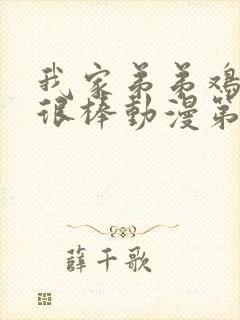 我家弟弟鸡
很棒動漫第
薛千歌